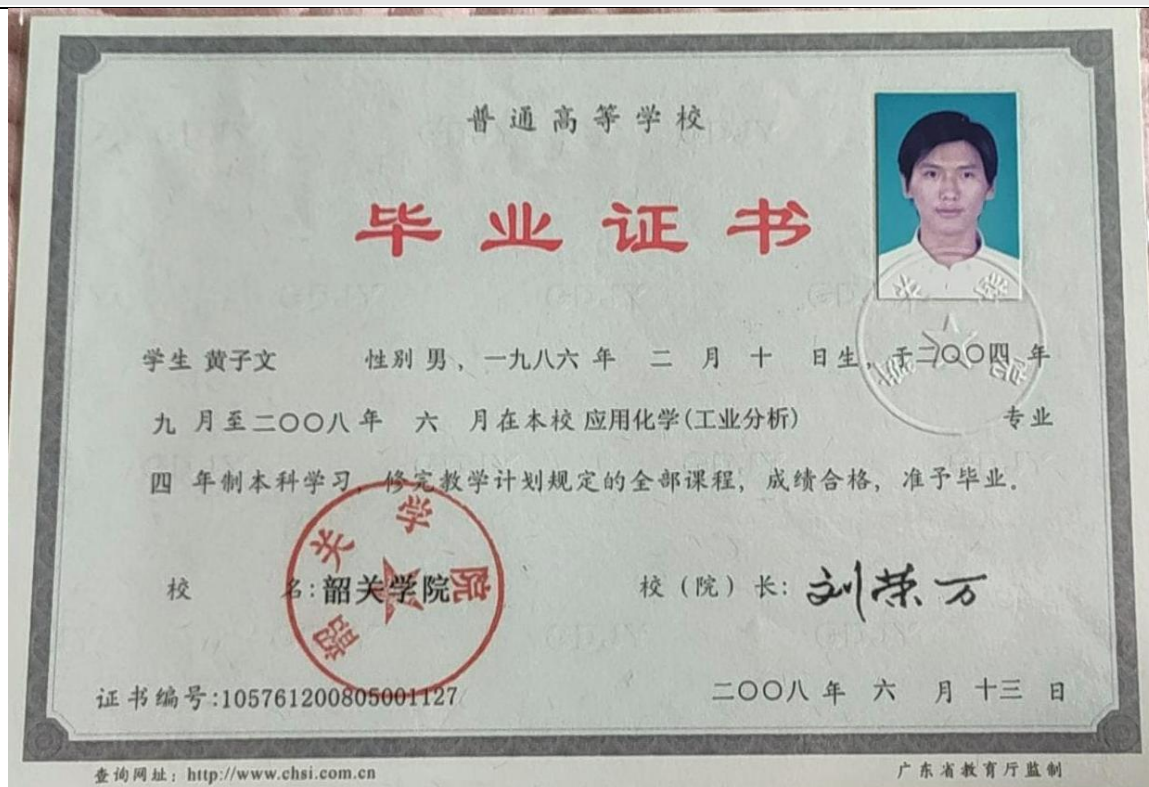 普通高等学校
毕业证书
学生 黄子文 性别 男，一九八六 年 二 月 十 日生，于二〇〇四 年
九 月至二〇〇八年 六 月在本校 应用化学(工业分析) 专业
四 年制本科学习，修完教学计划规定的全部课程，成绩合格，准予毕业。
校 名:韶关学院
校（院）长: 刘荣万
韶关学院
韶关学院
证书编号:105761200805001127
二〇〇八 年 六 月 十三 日
查询网址：http://www.chsi.com.cn
广东省教育厅监制